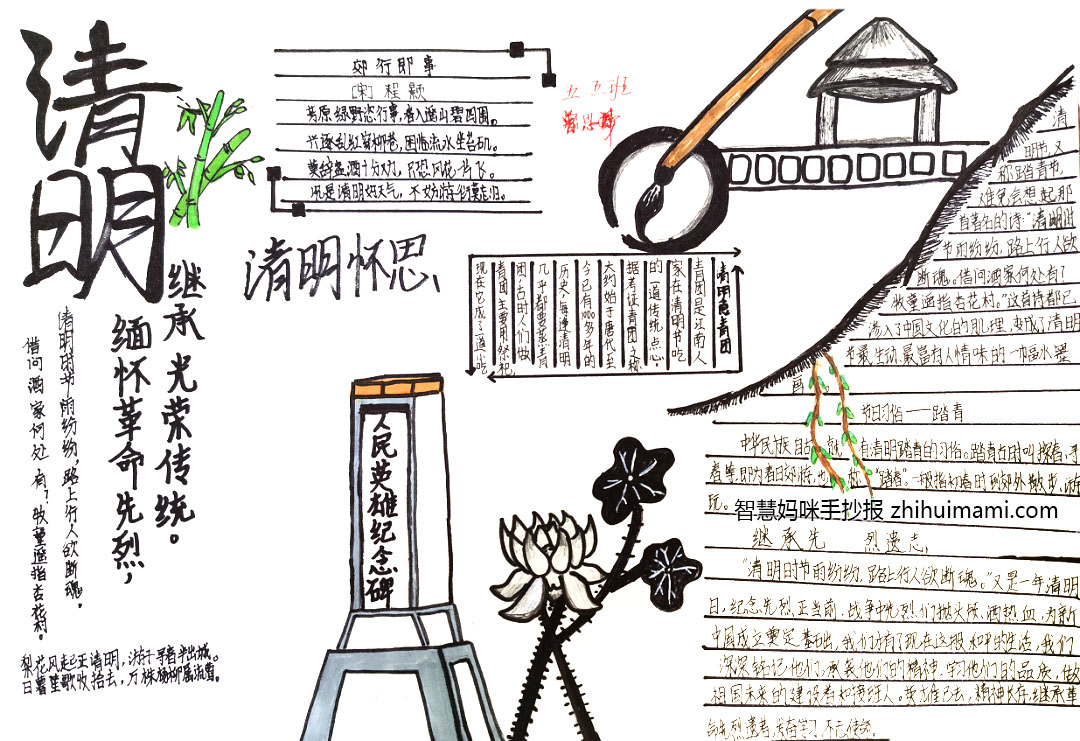 清明
郊行即事
[宋] 程颢
芳原绿野恣行事,春入遥山碧四围。
兴逐乱红穿柳巷,困临流水坐苔矶。
莫辞盏酒十分劝,只恐风花一片飞。
况是清明好天气,不妨游衍莫忘归。
五 五班
清明怀思
继承光荣传统。
缅怀革命先烈,
清明时节雨纷纷,路上行人欲断魂。
借问酒家何处有?牧童遥指杏花村。
梨花风起正清明,游子寻春半出城。
日暮笙歌收拾去,万株杨柳属流莺。
清明食青团
青团是江南人
家在清明节吃
的一道传统点心,
据考证青团之称
大约始于唐代,至
今已有1000多年的
历史,每逢清明
几乎都要蒸青
团,古时人们做
青团主要用祭祀
现在它成了道小吃
人民英雄纪念碑
清
明节又
称踏青节,
难免会想起那
首著名的诗:“清明时
节雨纷纷,路上行人欲
断魂。借问酒家何处有?
牧童遥指杏花村。”这首诗都已
渗入了中国文化的肌理,变成了清明
节最生动、最富有人情味的一幅水墨
画
节日习俗——踏青
中华民族自古就有清明踏青的习俗。踏青古时叫探春、寻
春等,即为春日郊游,也称“踏春”。一般指初春时到郊外散步、游
玩。
智慧妈咪手抄报 zhihuimami.com
继承先烈遗志,
“清明时节雨纷纷,路上行人欲断魂。”又是一年清明
日,纪念先烈正当前,战争中先烈们抛头颅,洒热血,为新
中国成立奠定基础,我们才有了现在这般和平的生活,我们
深深铭记他们,承袭他们的精神,学习他们的品质,做
祖国未来的建设者和接班人。英雄已去,精神长存,继承革
命先烈遗志,发奋学习,不忘传统。